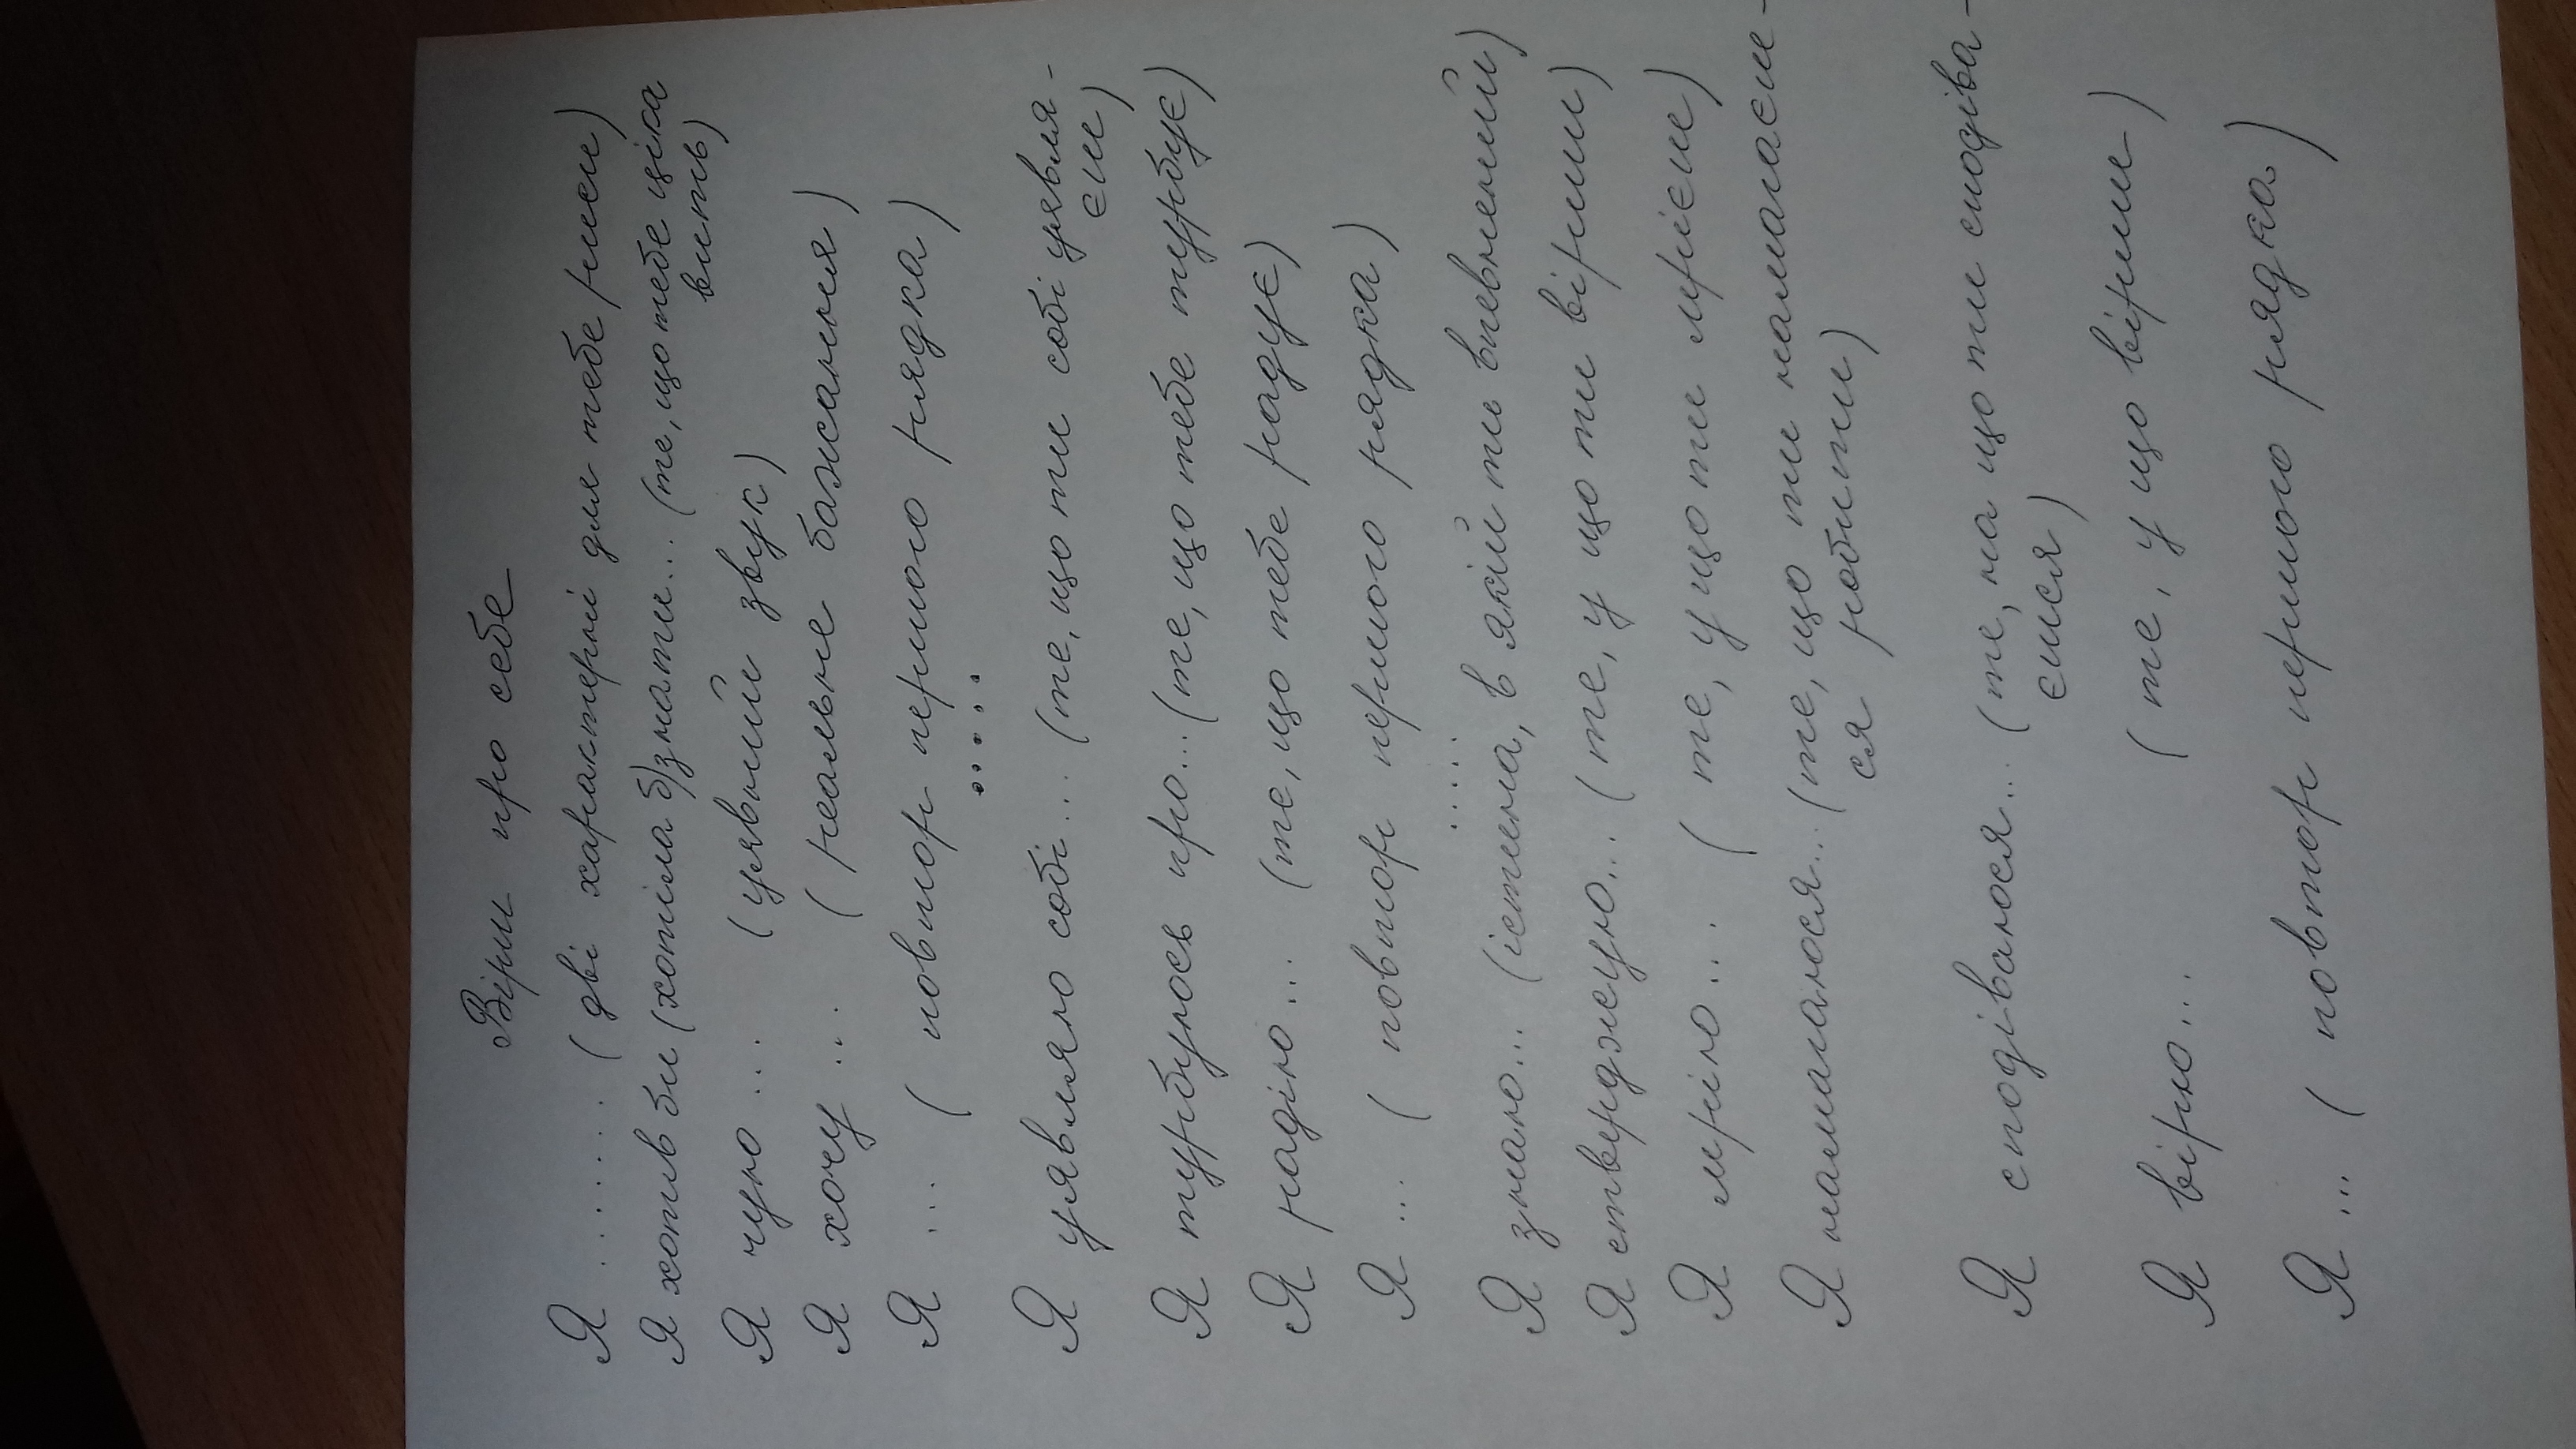 Вірш про себе
Я ....... ( дві характерні для тебе риси)
Я хотів би (хотіла б) знати... (те, що тебе ціка
вить)
Я чую ... (уявний звук)
Я хочу ... ( реальне бажання)
Я ... ( повтор першого рядка)
.....
Я уявляю собі... (те, що ти собі уявля-
єш)
Я турбуюсь про... (те, що тебе турбує)
Я радію... (те, що тебе радує)
Я... ( повтор першого рядка )
....
Я знаю... (істина, в якій ти впевнений)
Я стверджую... ( те, у що ти віриш)
Я мрію... ( те, у що ти мрієш)
Я намагаюся... (те, що ти намагаєш-
ся робити)
Я сподіваюся... ( те, на що ти сподіва-
єшся)
Я вірю... ( те, у що віриш)
Я ... ( повтор першого рядка.)